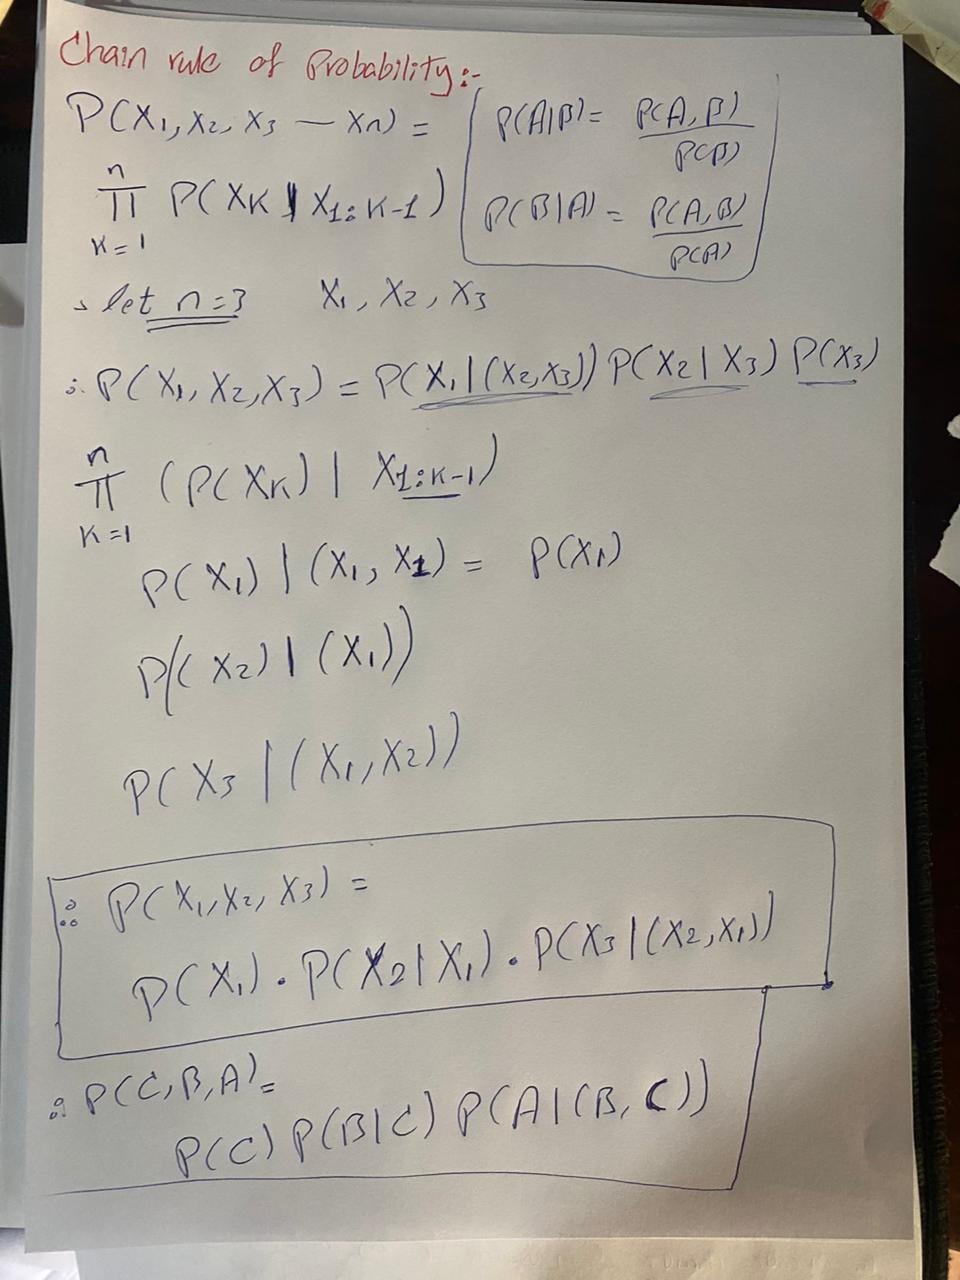 Chain rule of Probability:-
P(X1, X2, X3 — Xn) =
n
π P(XK | X1:K-1)
K=1
P(A|B) = P(A, B)
P(B)
P(B|A) = P(A,B)
P(A)
let n=3 X1, X2, X3
∴ P(X1, X2, X3) = P(X1|(X2,X3)) P(X2|X3) P(X3)
n
π (P(XK) | X1:K-1)
K=1
P(X1) | (X1, X1) = P(X1)
P((X2) | (X1))
P(X3 | (X1, X2))
∴ P(X1, X2, X3) =
P(X1) . P(X2|X1) . P(X3|(X2,X1))
∴ P(C, B, A) =
P(C) P(B|C) P(A|(B, C))